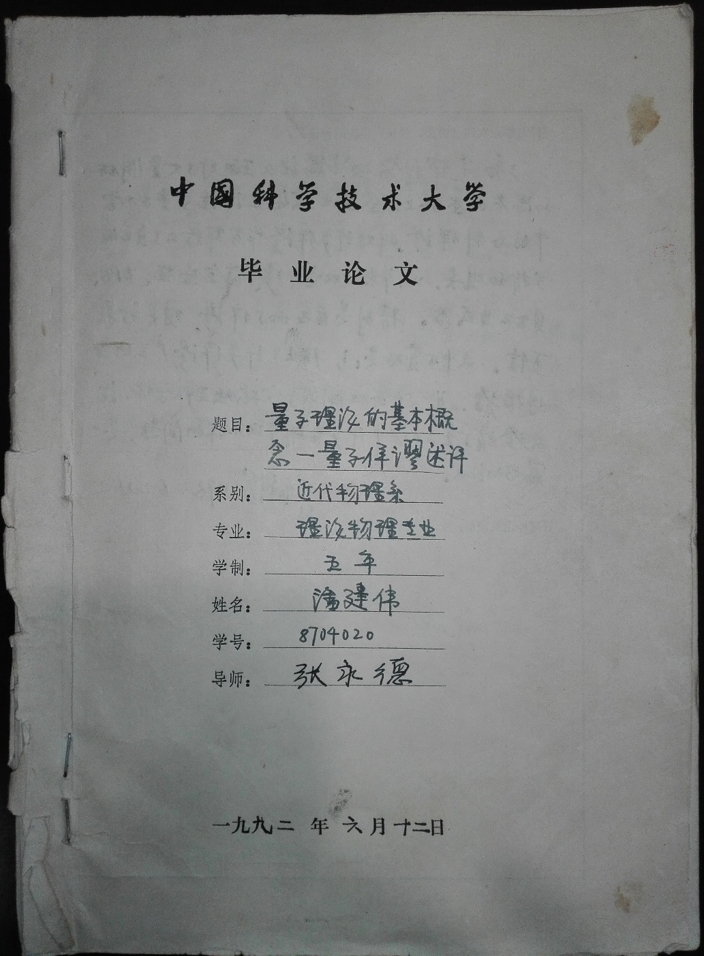 中国科学技术大学
毕业论文
题目: 量子理论的基本概
念—量子佯谬述评
系别: 近代物理系
专业: 理论物理专业
学制: 五年
姓名: 潘建伟
学号: 8704020
导师: 张永德
一九九二 年 六月十二日